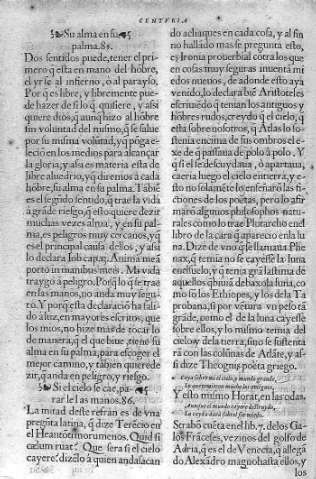 CENTVRIA
Su alma en su
palma. 85.
Dos sentidos puede, tener el pri-
mero q̃ esta en mano del hõbre,
el yr se al infierno, o al parayso,
Por q̃ es libre, y libremente pue-
de hazer de si lo q̃ quisiere, y assi
quiere dios, q̃ aunq̃ hizo al hõbre
sin voluntad del mismo, q̃ se salue
por su misma volũtad, yq̃ põga e-
leciõ en los medios para alcançar
la gloria, y assi es materia esta de
libre aluedrio, yq̃ diremos à cada
hõbre, su alma en su palma. Tãbiẽ
es el segũdo sentido, q̃ trae la vida
à grãde riesgo, q̃ esto quiere dezir
muchas vezes alma, y en su pal-
ma, es peligros muy cercanos, yq̃
es el principal causa dellos, y assi
lo declara
Anima mea
porto in manibus meis. Mi vida
traygo à peligro. Porq̃ lo q̃ se trae
en las manos, no anda muy segu-
ro. Y porq̃ esta declaraciõ ha falsa-
do altiz, en mayores escritos, que
los mios, no hize mas de tocar lo
de manera, q̃ el que biue, tiene su
alma en su palma, para escoger el
mejor camino, y tãbien quiere de
zir, q̃ anda en peligro, y riesgo.
Si el cielo se cae, pa-
rar le las manos. 86.
La mitad deste refran es de vna
pregũta latina, q̃ dize Terẽcio en
el Heautõtimorumenos. Quid si
cælum ruat? Que sera si el cielo
cayere? dizelo à quien anda sacan
do achaques en cada cosa, y al fin
no hallado mas se pregunta esto,
es Ironia prouerbial cõtra los que
en cosas muy seguras inuentã mi
edos nueuos, de adonde esto aya
venido, lo declara biẽ Aristoteles
escriuiẽdo q̃ tenian los antiguos y
hõbres rudos, creydo q̃ el cielo, q̃
esta sobre nosotros, q̃ Atlas lo so-
stenia encima de sus ombros el e-
xe de q̃ passaua de polo à polo. Y
q̃ si el se descuydaua, ò apartaua,
caeria luego el cielo en tierra, y es-
to no solamẽte lo enseñarõ las fic-
tiones de los poetas, pero lo afir
marõ algunos philosophos natu-
rales como lo trae Plutarcho en el
libro de la cara q̃ aparecio en la lu
na. Dize de vno q̃ se llamaua Phe
nax, q̃ temia no cayesse la luna
en el suelo, y q̃ tenia grã lastima de
aquellos q̃ biuiã debaxo la luna, co
mo so los Ethiopes, y los de la Ta
probana, si por vẽtura vn peso tã
grãde, como el de la luna cayesse
sobre ellos, y lo mismo temia del
cielo y dela tierra, sino se sustenta
rã con las colũnas de Atlãte, y as-
si dize Theognis poëta griego.
Y esto mismo Horat, en las odas.
Strabõ cuẽta en el lib. 7. delos Ga-
los Frãceses, vezinos del golfo de
Adria, que es el de Venecia, q̃ allega
do Alexãdro magno hasta ellos, y
los